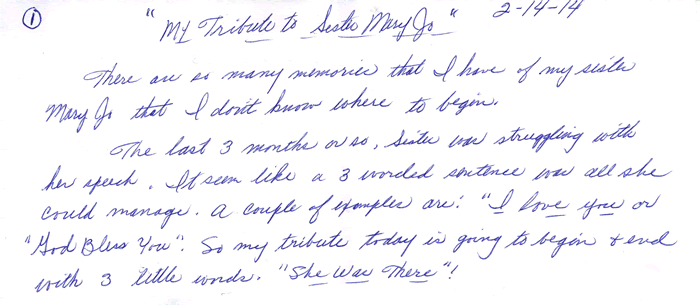 ① "My Tribute to Sister Mary Jo" 2-14-14
There are so many memories that I have of my sister
Mary Jo that I don't know where to begin.
The last 3 months or so, Sister was struggling with
her speech. It seem like a 3 worded sentence was all she
could manage. A couple of examples are: "I love you or
"God Bless You". So my tribute today is going to begin & end
with 3 little words. "She Was There"!